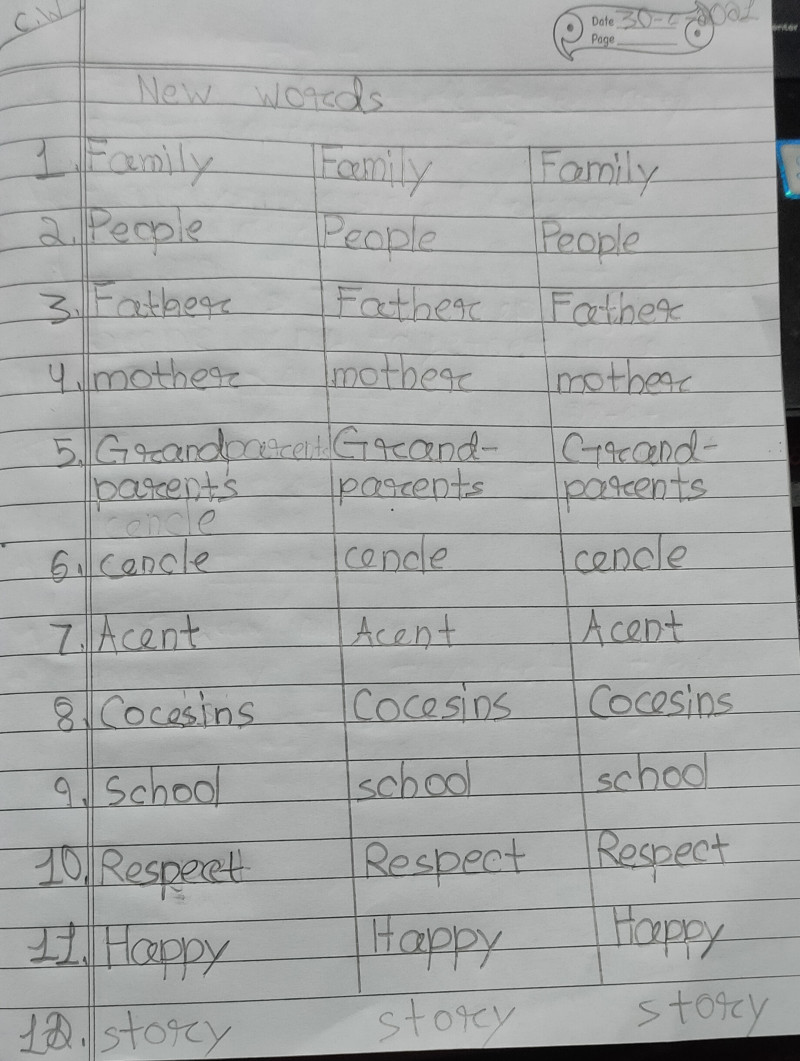 C.W
Date
Page
New words
1. Family Family Family
2. People People People
3. Father Father Father
4. mother mother mother
5. Grandparent Grand- Grand-
parents parents parents
uncle
6. uncle uncle uncle
7. Aunt Aunt Aunt
8. Cousins Cousins Cousins
9. School school school
10. Respect Respect Respect
11. Happy Happy Happy
12. story story story